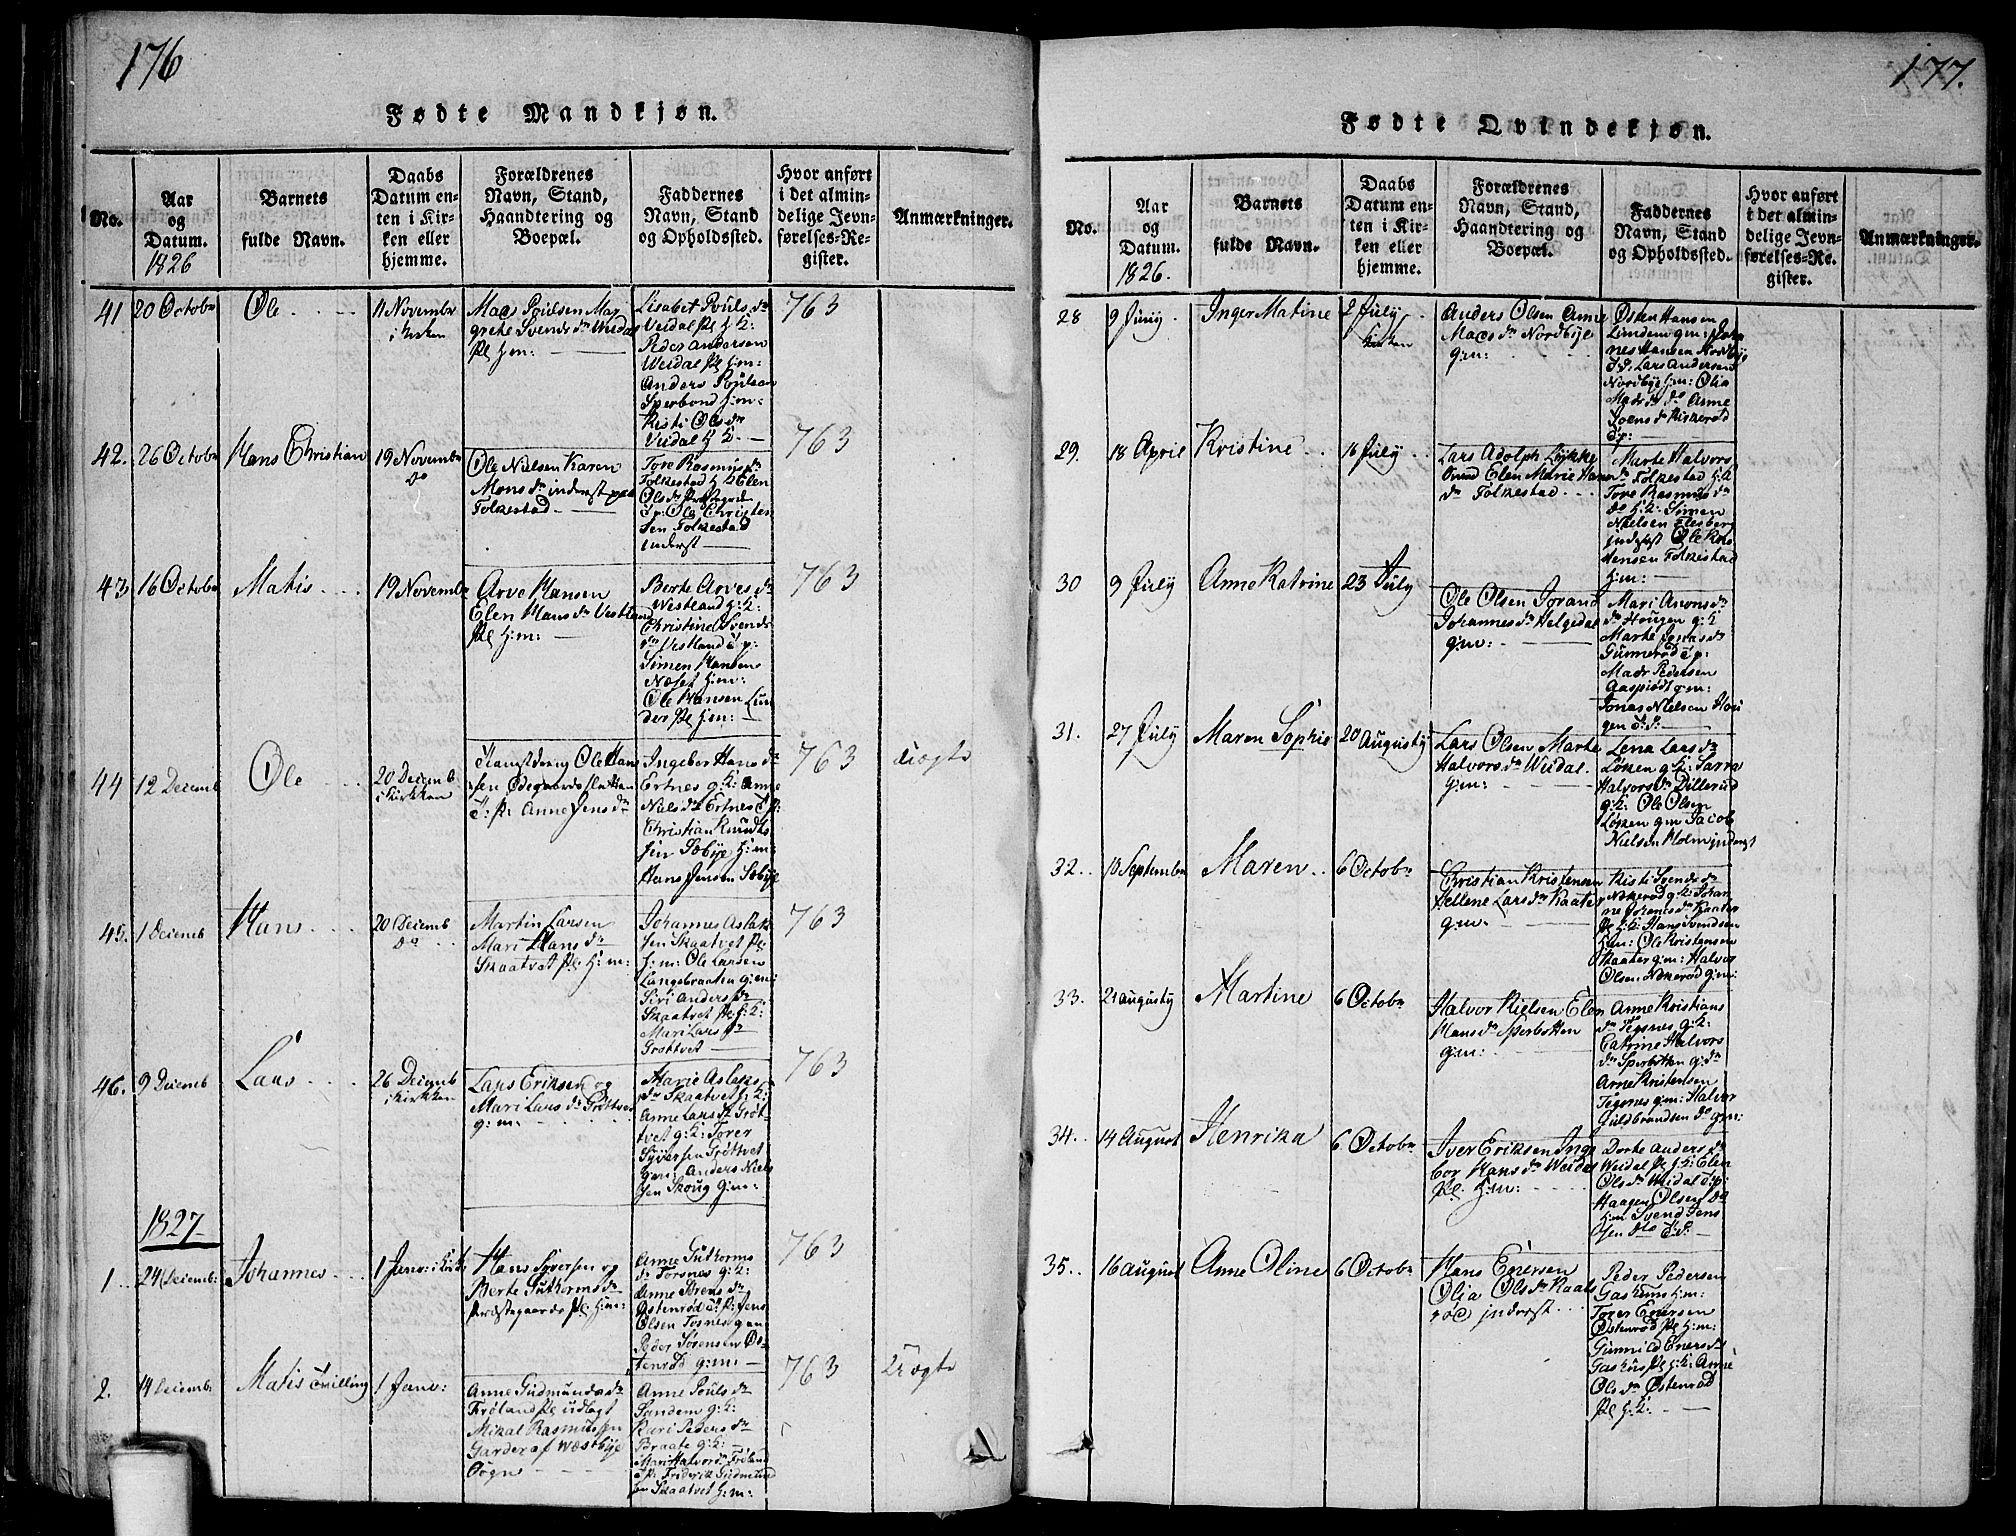 176
Fødte Mandkjøn.
No.
Aar
og
Datum.
1826
Barnets
fulde Navn.
Daabs
Datum en-
ten i Kir-
ken eller
hjemme.
Forældrenes
Navn, Stand,
Haandtering og
Boepæl.
Faddernes
Navn, Stand
og Opholdssted.
Hvor anført
i det almin-
delige Jevn-
førelses-Re-
gister.
Anmærkninger.
41
20 Octobr
Ole
11 Novembr
i kirken
Mads Poulsen Mar
grete Svends dr Weidal
Pl h:m:
Lisabet Pouls dr
Veidal Pl h:k:
Peder Andersen
Weidal Pl h:m:
Anders Poulsen
Sperbond h:m:
Kisti Ols dr
Veidal h:k:
763
42.
26 Octobr
Hans Christian
19 Novembr
do
Ole Nielsen Karen
Mons dr inderst paa
Folkestad
Tore Rasmus dr
Folkestad h:k Elen
Ols dr Prestegrd
d:p: Ole Christen
sen Folkestad
inderst
763
43
16 Octobr
Matis
19 Novembr
Arve Hansen
Elen Hans dr Vestland
Pl h:m:
Berte Arves dr
Westland h:k:
Christine Svends
dr Vestland d:p:
Simen Hansen
Næset h:m:
Ole Hansen Lun
der Pl h:m:
763
44
12 Decemb
Ole
20 Decemb
i kirkken
Ole Hans
sen Ødegaards
d: p: Anne Jens dr
Ingebor Hans dr
Ertnes g:k: Anne
Niels dr Ertnes d:p:
Christian Knudt
sen Sæbye h:m:
Hans Jensen Sæbye
763
uægte
45.
1 Decemb
Hans
20 Decemb
do
Martin Larsen
Mari Hans dr
Skaatvet Pl: h:m:
Johannes Aslak
sen Skaatvet Pl:
h:m: Ole Larsen
Langebraaten g:m:
Siri Anders dr
Skaatvet Pl h:k:
Mari Lars dr
Grøttvet
763
46.
9 Decemb
Lars
26 Decemb
i kirkken
Lars Eriksen og
Mari Lars dr Grøttvet
g:m:
Marie Aslaks
dr Skaatvet h:k:
Anne Lars dr Grøt
tvet g:k: Torer
Syversen Grøttvet
g:m: Anders Niels
sen Skoug g:m:
763
1827
1
24 Decemb:
Johannes
1 Janv: i kirk
Hans Syversen og
Berte Guthorms dr
Prestegaards Pl h:m:
Anne Guthorms
dr Torsnes g:k:
Anne Sørens dr
Østenrød d:p: Jens
Olsen Tosnes g:m
Peder Sørensen Øs
tenrød g:m:
763
2.
14 Decemb:
Matis tvilling
1 Janv:
Anne Gudmunds dr
Frøland Pl udlagt
Mikal Rasmussen
Garder af Wæstbye
Sogn
Anne Pouls dr
Sundem g:k:
Kari Peders dr
Poraate g:k:
Mari Halvors dr Frøland
d:p: Friderik Gudmund
sen Skaatvet h:m:
763
uægte
177.
Fødte Qvindekjøn.
No.
Aar
og
Datum.
1826.
Barnets
fulde Navn.
Daabs
Datum en-
ten i Kir-
ken eller
hjemme.
Forældrenes
Navn, Stand,
Haandtering og
Boepæl.
Faddernes
Navn, Stand
og Opholdssted.
Hvor anført
i det almin-
delige Jevn-
førelses-Re-
gister.
Anmærkninger.
28
9 Juny
Inger Matine
2 July
kirken
Anders Olsen Anne
Mads dr Nordbye
g:m:
Østen Hansen
Lindem g:m: Joha
nes Hansen Nordbye
d:d: Lars Andersen
Nordbye h:m: Olia
Mads dr do Anne
Joens dr Kiskerød
d:p:
29.
18 April
Kristine
16 July
Lars Adolph Lykke
Trund Elen Marie Hans
dr Folkestad
Marte Halvors
dr Folkestad h:k
Tore Rasmus dr
do h:k: Simen
Nielsen Flesberg
inderst Ole Kris
tensen Folkestad
h:m:
30
9 July
Anne Katrine
23 July
Ole Olsen Jorand
Johannes dr Helgedal
g:m:
Mari Amons dr
Hougen g:k
Marte Jonas dr
Gunnerød d:p:
Mads Pedersen
Aaspiødt g:m:
Jonas Nielsen Hou
gen d:d:
31.
27 July
Maren Sophie
20 Augusty
Lars Olsen Marte
Halvors dr Weidal.
g:m:
Lena Lars dr
Løken g:k: Sarra
Halvors dr Dillerud
g:k: Ole Olsen
Løken g:m Jacob
Nielsen Holm inderst
32.
10 September
Maren
6 Octobr
Christian Kristensen
Hellene Lars dr Kaater
g:m:
Kisti Svends dr
Nøkerød g:k: Johan
ne Johans dr Kaater
Pl h:k: Hans Svendsen
h:m: Ole Kristensen
Kaater g:m: Halvor
Olsen Nøkerød g:m:
33.
21 Augusty
Martine
6 Octobr
Halvor Nielsen Elen
Hans dr Sperbotten
g:m:
Anne Kristians
dr Tegsnes g:k:
Catrine Halvors
dr Sperbotten g:dr
Arne Kristensen
Tegsnes g:m: Halvor
Guldbrandsen do g:m:
34.
14 August
Henrika
6 Octobr
Iver Eriksen Inge
bor Hans dr Weidal
Pl. h:m:
Dorte Anders dr
Weidal Pl h:k: Elen
Ols dr Weidal d:p:
Haagen Olsen do
h:m Svend Jens
sen do d:d:
35.
16 August
Anne Oline
6 Octobr
Hans Enersen
Olia Ols dr Kaats
rød inderst
Peder Pedersen
Gaskuns h:m:
Torer Enersen
Østenrød Pl h:m:
Gunnild Eners dr
Gaskus Pl h:k: Anne
Ols dr Østenrød
Pl h:k: